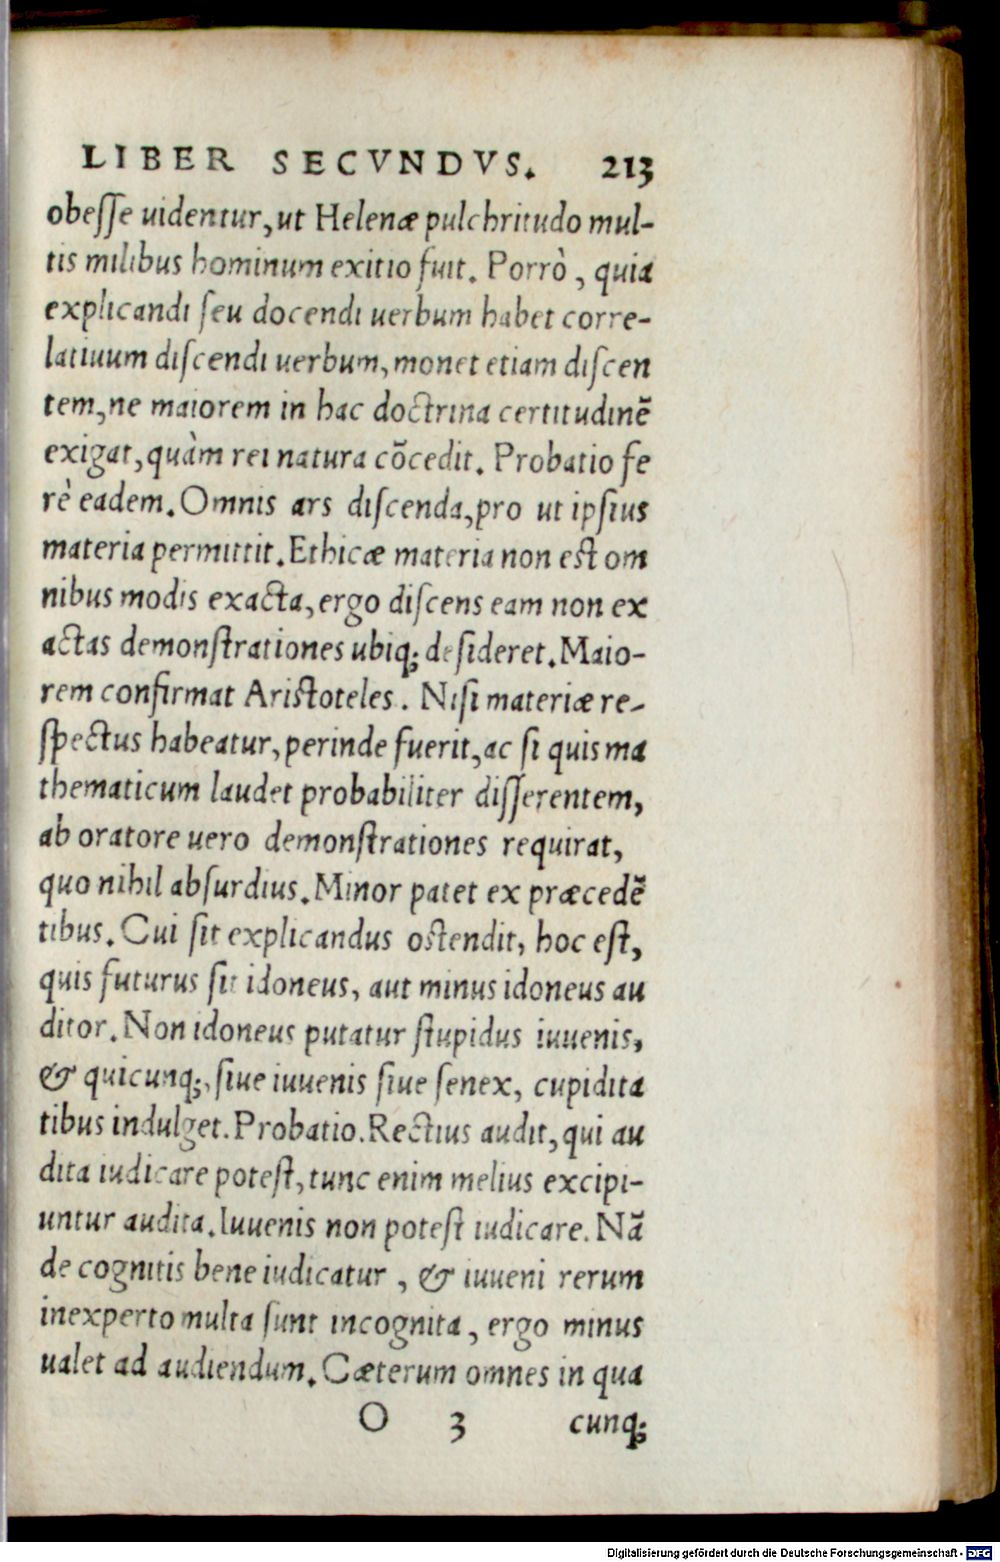 LIBER SECVNDVS. 213
obeſſe uidentur, ut Helenæ pulchritudo mul-
tis milibus hominum exitio fuit. Porrò, quia
explicandi ſeu docendi uerbum habet corre-
latiuum diſcendi uerbum, monet etiam diſcen
tem, ne maiorem in hac doctrina certitudinẽ
exigat, quàm rei natura cõcedit. Probatio fe
rè eadem. Omnis ars diſcenda, pro ut ipſius
materia permittit. Ethicæ materia non eſt om
nibus modis exacta, ergo diſcens eam non ex
actas demonſtrationes ubiq; deſideret. Maio-
rem confirmat Ariſtoteles. Niſi materiæ re-
ſpectus habeatur, perinde fuerit, ac ſi quis ma
thematicum laudet probabiliter diſſerentem,
ab oratore uero demonſtrationes requirat,
quo nihil abſurdius. Minor patet ex præcedẽ
tibus. Cui ſit explicandus oſtendit, hoc eſt,
quis futurus ſit idoneus, aut minus idoneus au
ditor. Non idoneus putatur ſtupidus iuuenis,
& quicunq;, ſiue iuuenis ſiue ſenex, cupidita
tibus indulget. Probatio. Rectius audit, qui au
dita iudicare poteſt, tunc enim melius excipi-
untur audita. Iuuenis non poteſt iudicare. Nã
de cognitis bene iudicatur, & iuueni rerum
inexperto multa ſunt incognita, ergo minus
ualet ad audiendum. Cæterum omnes in qua
O 3 cunq;
Digitalisierung gefördert durch die Deutsche Forschungsgemeinschaft - DFG